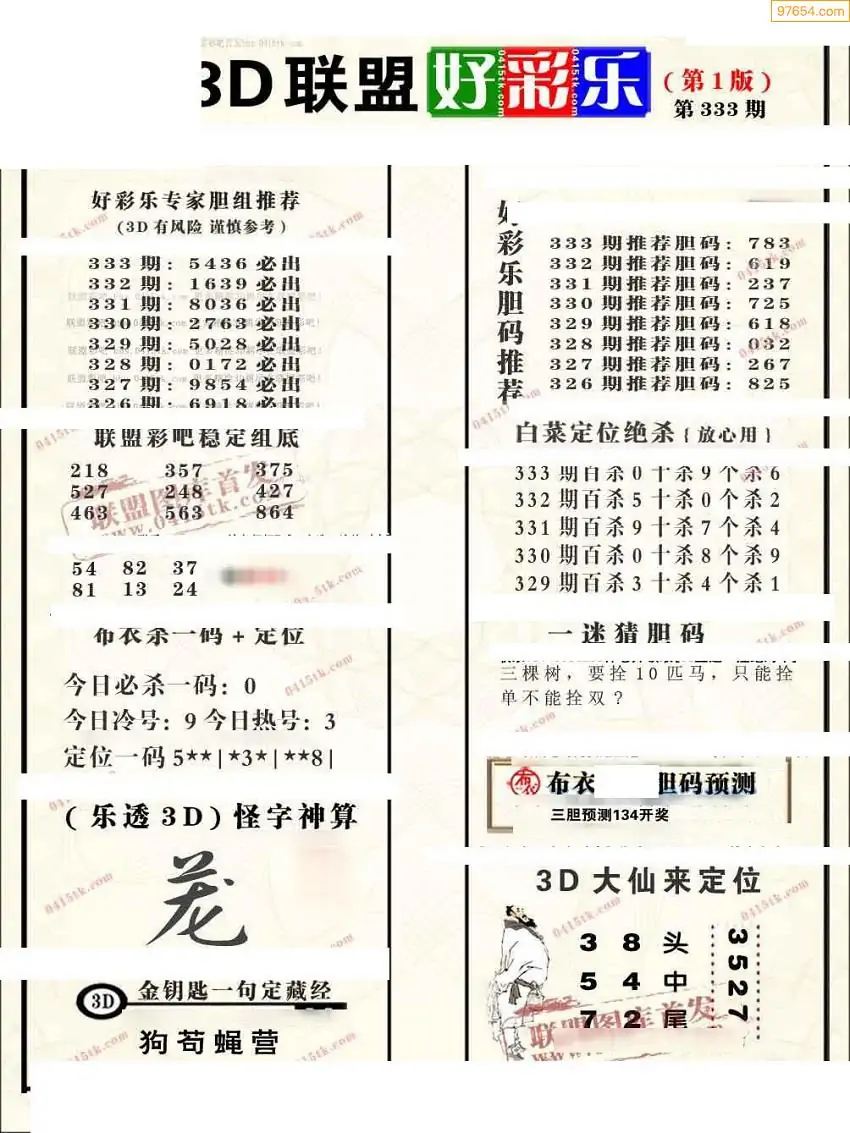 97654.com
3D联盟好彩乐
(第1版)
第333期
好彩乐专家胆组推荐
(3D有风险 谨慎参考)
333期: 5436必出
332期: 1639必出
331期: 8036必出
330期: 2763必出
329期: 5028必出
328期: 0172必出
327期: 9854必出
326期: 6918必出
联盟彩吧稳定组底
218 357 375
527 248 427
463 563 864
54 82 37
81 13 24
布衣杀一码+定位
今日必杀一码: 0
今日冷号: 9 今日热号: 3
定位一码 5**|*3*|**8|
(乐透3D)怪字神算
茏
3D 金钥匙一句定藏经
狗苟蝇营
好彩乐胆码推荐
333期推荐胆码: 783
332期推荐胆码: 619
331期推荐胆码: 237
330期推荐胆码: 725
329期推荐胆码: 618
328期推荐胆码: 032
327期推荐胆码: 267
326期推荐胆码: 825
白菜定位绝杀{放心用}
333期百杀0十杀9个杀6
332期百杀5十杀0个杀2
331期百杀9十杀7个杀4
330期百杀0十杀8个杀9
329期百杀3十杀4个杀1
一迷猜胆码
三棵树，要拴10匹马，只能拴
单不能拴双？
布衣 胆码预测
三胆预测134开奖
3D大仙来定位
3 8 头
5 4 中
7 2 尾
3527
联盟图库首发
www.0415tk.com
0415tk.com